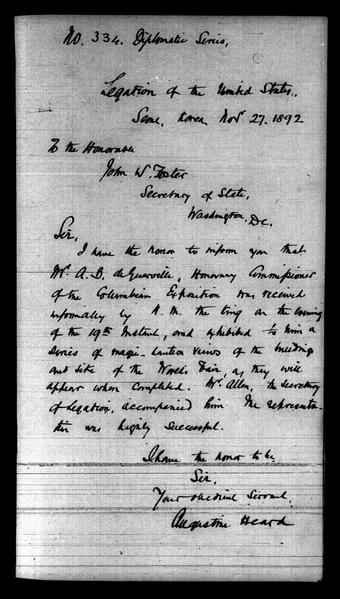 No. 334. Diplomatic Series,
Legation of the United States,
Seoul, Korea Nov. 27. 1892
To the Honorable
John W. Foster
Secretary of State,
Washington, D.C.
Sir,
I have the honor to inform you that
Mr. A. B. de Guerville, Honorary Commissioner
of the Columbian Exposition was received
informally by H. M. the King on the evening
of the 19th Instant, and exhibited to him a
series of magic-lantern views of the buildings
and site of the World's Fair, as they will
appear when completed. Mr. Allen, the Secretary
of Legation, accompanied him. The representa-
tion was highly successful.
I have the honor to be
Sir,
Your obedient Servant,
Augustine Heard